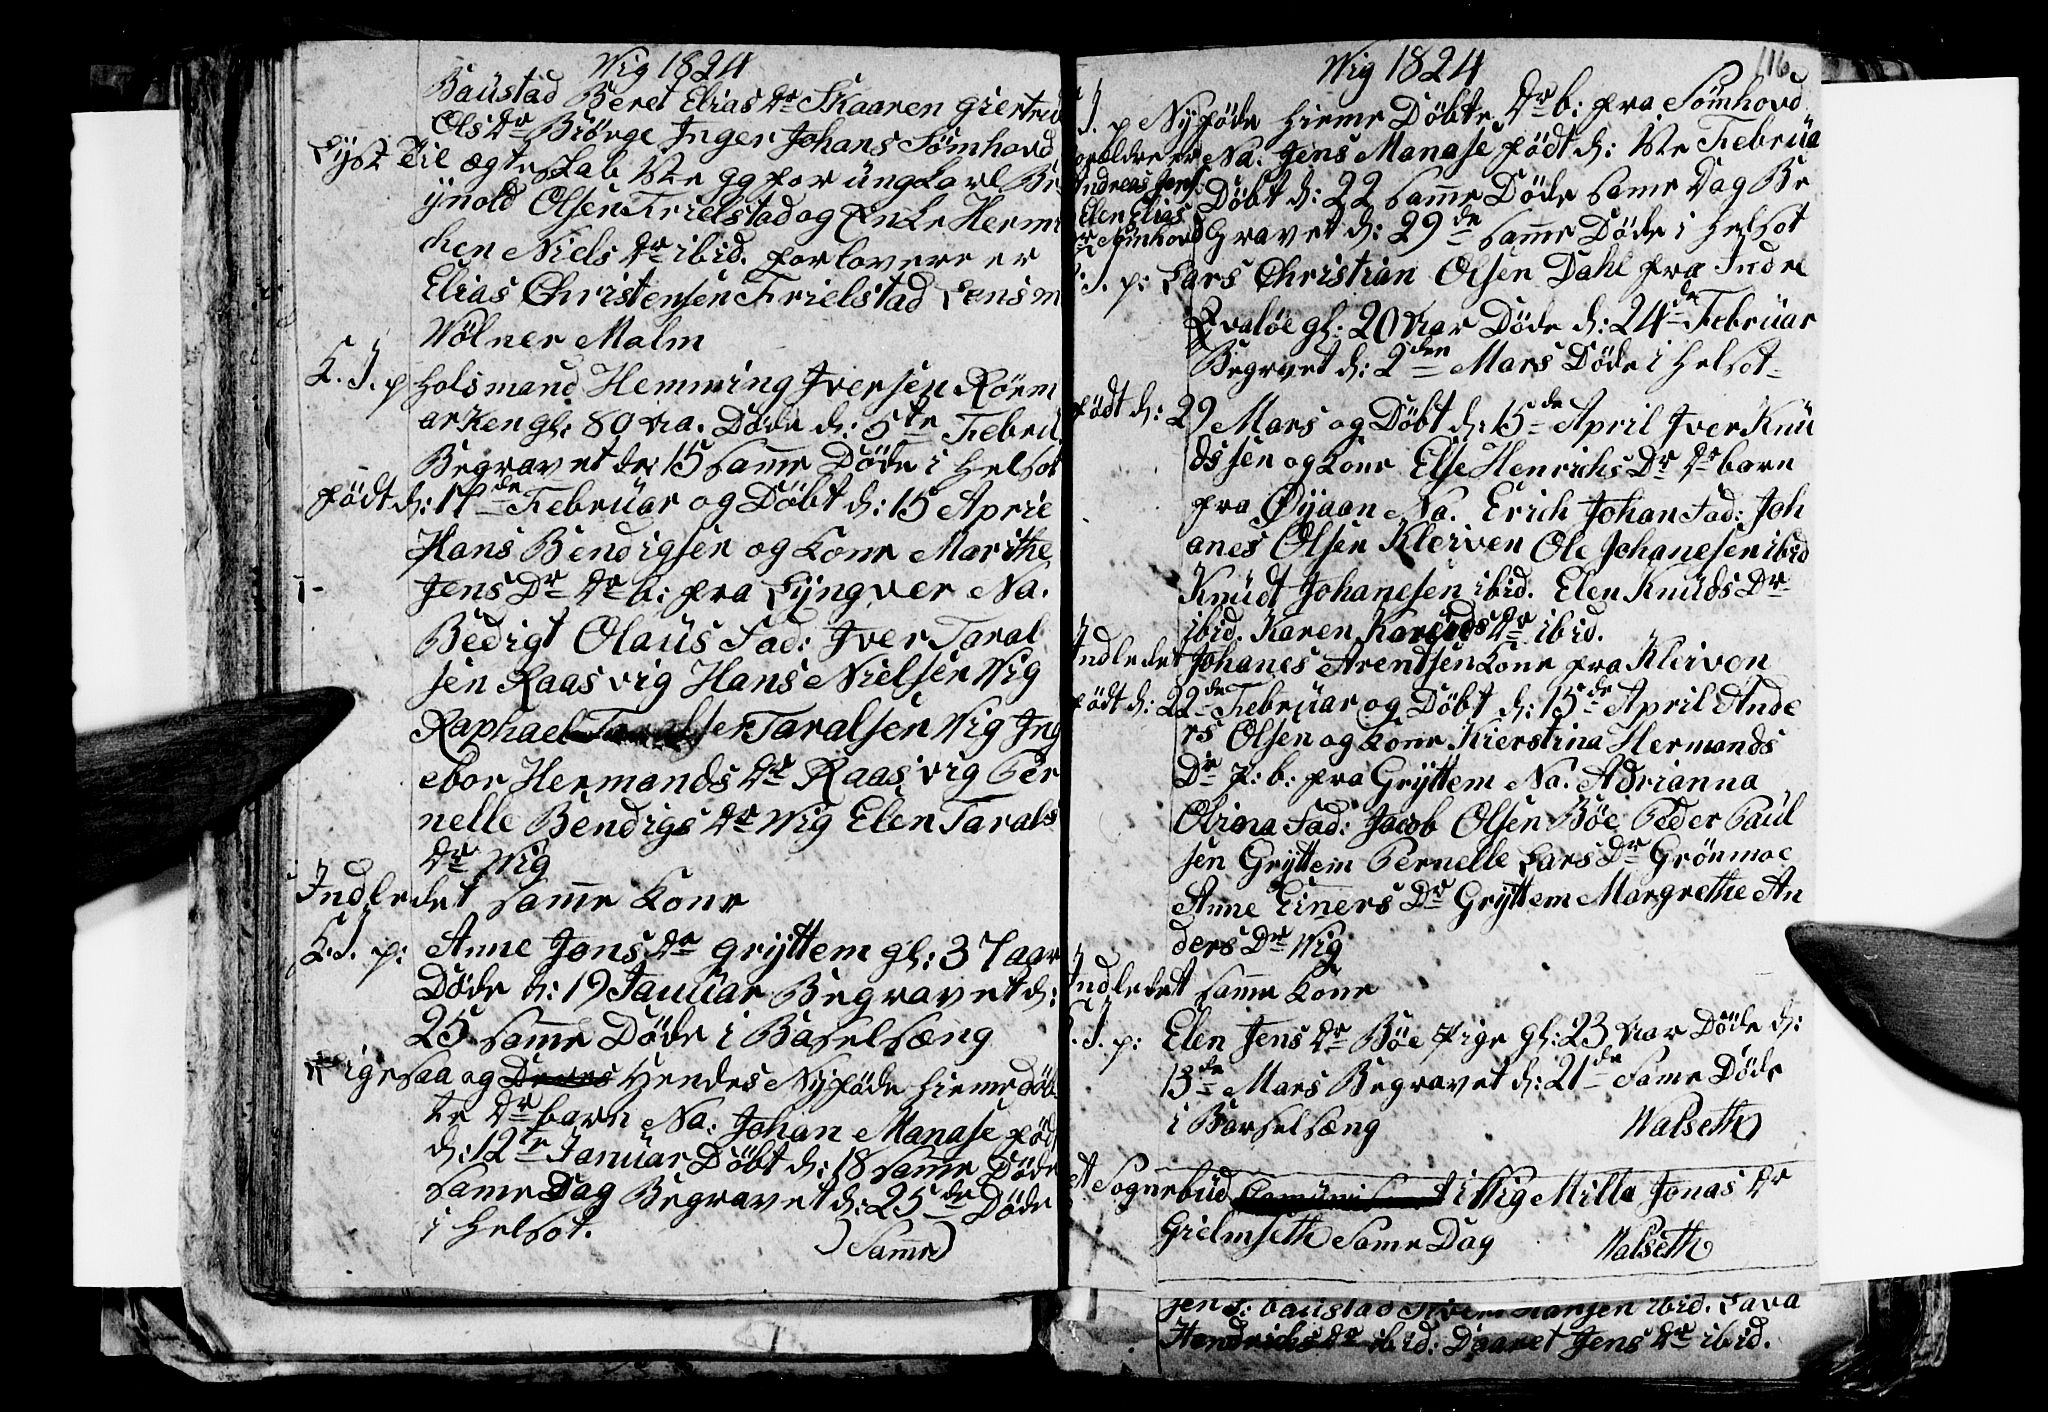 Wig 1824
Baustad Beret Elias Dr Skaaren Giertrud
Ols Dr Biørge Inger Johans Sømhovd
Lyst Til ægteskab 1ste gg for ungkarl
ynold Olsen Frielstad og Enke Herni
chen Niels Dr ibid. forlovere er
Elias Christensen Frielstad Lensm
Wölner Malm
K. J. p Holsmand Hemming Iversen Röem
arken gl: 80 Aa. Döde d: 5te Febru
Begravet d: 15 same Döde i Helsot
födt d: 17de Februar og Döbt d: 15 Aprie
Hans Bendigsen og Kone Marithe
Jens Dr Dr b: fra Lyngver Na.
Bedigt Olaus Fad: Iver Taral
sen Raasvig Hans Nielsen Wig
Raphael Taralsen Wig Ing
ebor Hermands Dr Raasvig Per
nelle Bendigs Dr Wig Elen Tarals
Dr Wig
Indledet same Kone
K. J. p: Anne Jons Dr Gryttem gl: 37 aar
Döde d: 19 Januar Begravet d:
25 same Döde i Baselsæng
Ligesaa og Deres Hendes Nyföde hieme döb
te Dr barn Na: Johan Manase föd
d: 12te Januar Döbt d: 18 same Döde
same Dag Begravet d: 25de Döde
i Helsot.
Same
Wig 1824
116
J. p Nyföde hieme Döbte Dr b: fra Sömhovd
foreldre er Na: Jens Manase födt d: Februa
Andreas Jens Döbt d: 22 same Döde same Dag Be
Elen Elias Gravet d: 29de same Döde i Helsot
Dr Sömhovd
J. p: Lars Christian Olsen Dahl fra Indre
Qvalöe gl: 20 Aar Döde d: 24de Februar
Begravet d: 2den Mars Döde i Helsot
födt d: 29 Mars og Döbt d: 15de April Iver Knu
dssen og Kone Else Henrichs Dr Dr barn
fra Öyaan Na. Erich Johan Fad: Joh
anes Olsen Klerven Ole Johanesen ibid
Knudt Johanesen ibid. Elen Knuds Dr
ibid. Karen Dr ibid.
Indledet Johanes Arentsen Kone fra Klerven
födt d: 22de Februar og Döbt d: 15de April Ande
rs Olsen og Kone Kierstina Hermands
Dr p: b: fra Gryttem Na. Adrianna
Olina Fad: Jacob Olsen Böe Peder Paul
sen Gryttem Pernelle Lars Dr Grönmoe
Anne Einers Dr Gryttem Margrethe An
ders Dr Wig
Indledet same Kone
J. p: Elen Jens Dr Böe Pige gl: 23 Aar Döde d:
13de Mars Begravet d: 21de Same Döde
i Barselsæng Walseth
Sognebud i Wig Milla Jonas Dr
Grielmseth Same Dag Walseth
Baustad Hansen ibid. Lava
Hendrichs Dr ibid: Daaret Jens Dr ibid.